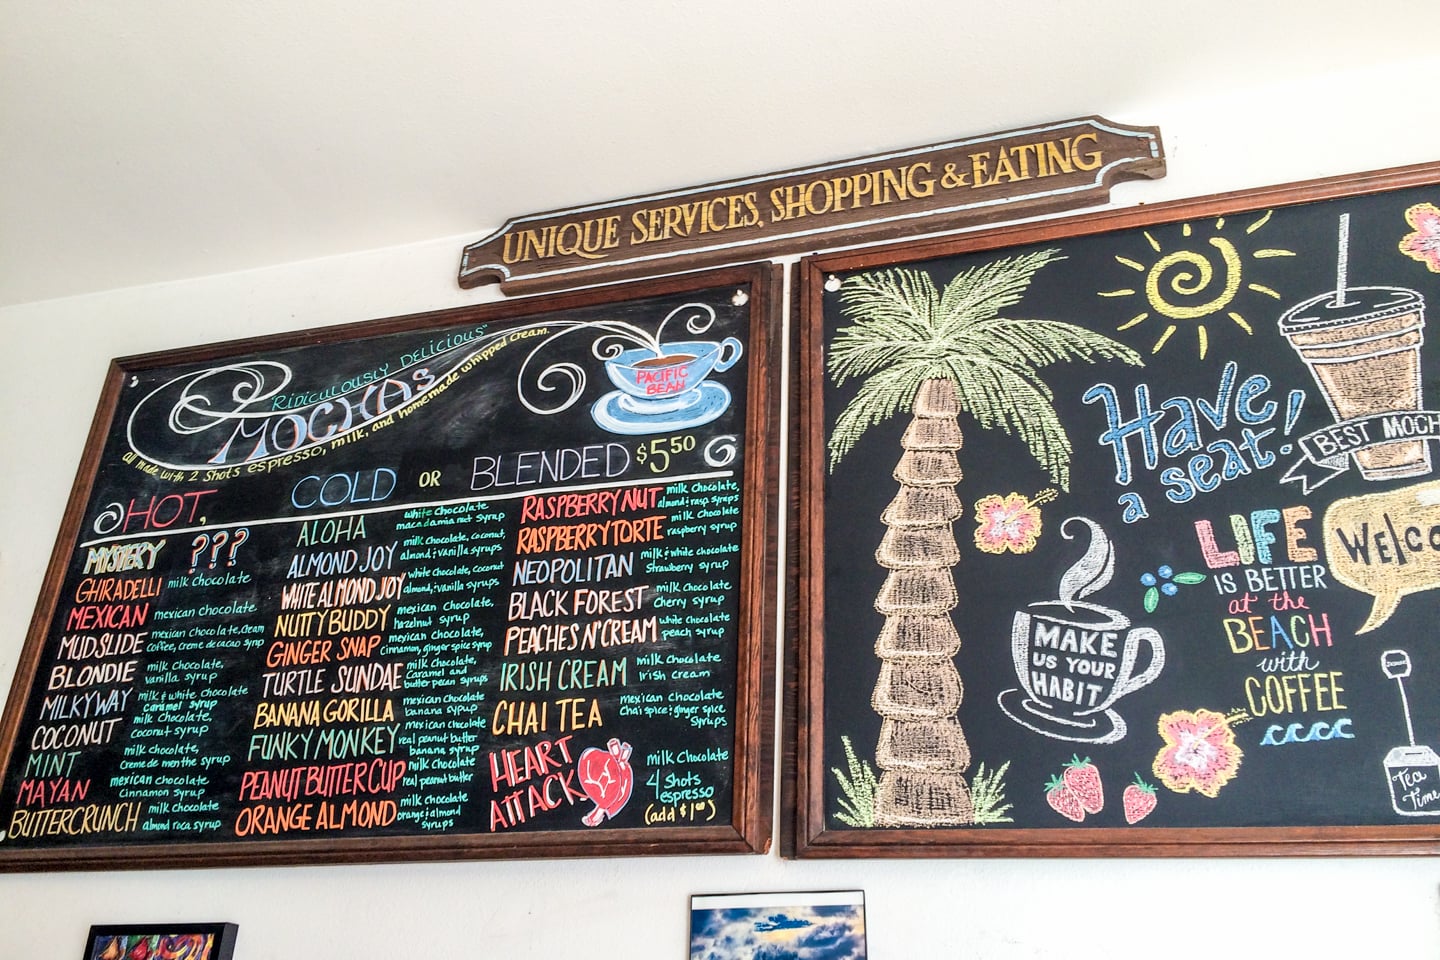 UNIQUE SERVICES, SHOPPING & EATING
"RIDICULOUSLY DELICIOUS"
MOCHAS
all made with 2 shots espresso, milk, and homemade whipped cream.
PACIFIC
BEAN
HOT, COLD OR BLENDED $5.50
MYSTERY ???
GHIRADELLI milk chocolate
MEXICAN mexican chocolate
MUDSLIDE mexican chocolate, cream
coffee, creme de cacao syrup
BLONDIE milk chocolate,
vanilla syrup
MILKYWAY milk & white chocolate
caramel syrup
COCONUT milk chocolate,
coconut syrup
MINT milk chocolate,
Creme de menthe syrup
MAYAN mexican chocolate
Cinnamon syrup
BUTTERCRUNCH milk chocolate
almond roca syrup
ALOHA white chocolate
macadamia nut syrup
ALMOND JOY milk chocolate, coconut,
almond & vanilla syrups
WHITE ALMOND JOY white chocolate, coconut
almond, & vanilla syrups
NUTTY BUDDY mexican chocolate,
hazelnut syrup
GINGER SNAP mexican chocolate,
cinnamon, ginger spice syrup
TURTLE SUNDAE milk chocolate,
Caramel and
butter pecan syrups
BANANA GORILLA mexican chocolate
banana syrup
FUNKY MONKEY mexican chocolate
real peanut butter
banana syrup
PEANUT BUTTER CUP milk chocolate
real peanut butter
ORANGE ALMOND milk chocolate
orange & almond
syrups
RASPBERRY NUT milk chocolate,
almond & rasp syrups
RASPBERRY TORTE milk chocolate
raspberry syrup
NEOPOLITAN milk & white chocolate
Strawberry syrup
BLACK FOREST milk chocolate
Cherry syrup
PEACHES N' CREAM white chocolate
peach syrup
IRISH CREAM milk chocolate
Irish cream
CHAI TEA mexican chocolate
Chai spice & ginger spice
Syrups
HEART
ATTACK
milk chocolate
4 shots
espresso
(add $1.00)
Have
a seat!
BEST MOCH
LIFE
IS BETTER
at the
BEACH
with
COFFEE
Welco
MAKE
US YOUR
HABIT
Tea
Time